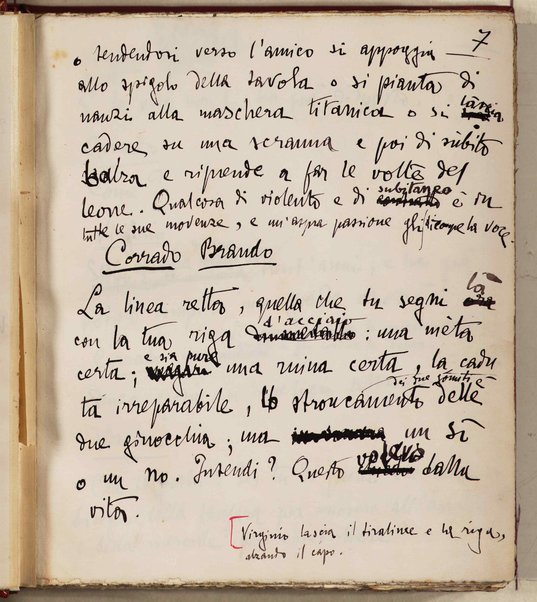 7
o tendendosi verso l'amico si appoggia
allo spigolo della tavola o si pianta di
nanzi alla maschera titanica o si lascia
cadere su una scranna e poi di sùbito
balza e riprende a far le volte del
leone. Qualcosa di violento e di subitaneo è in
tutte le sue movenze, e un'aspra passione gli la voce.
Corrado Brando
La linea retta, quella che tu segni là
con la tua riga d'acciaio: una mèta
certa; e sia pure una ruina certa, la cadu
ta irreparabile, lo stroncamento delle
dei due gomiti e
due ginocchia; ma un sì
o un no. Intendi? Questo volevo dalla
vita.
[Virginio lascia il tiralinee e la riga,
alzando il capo.